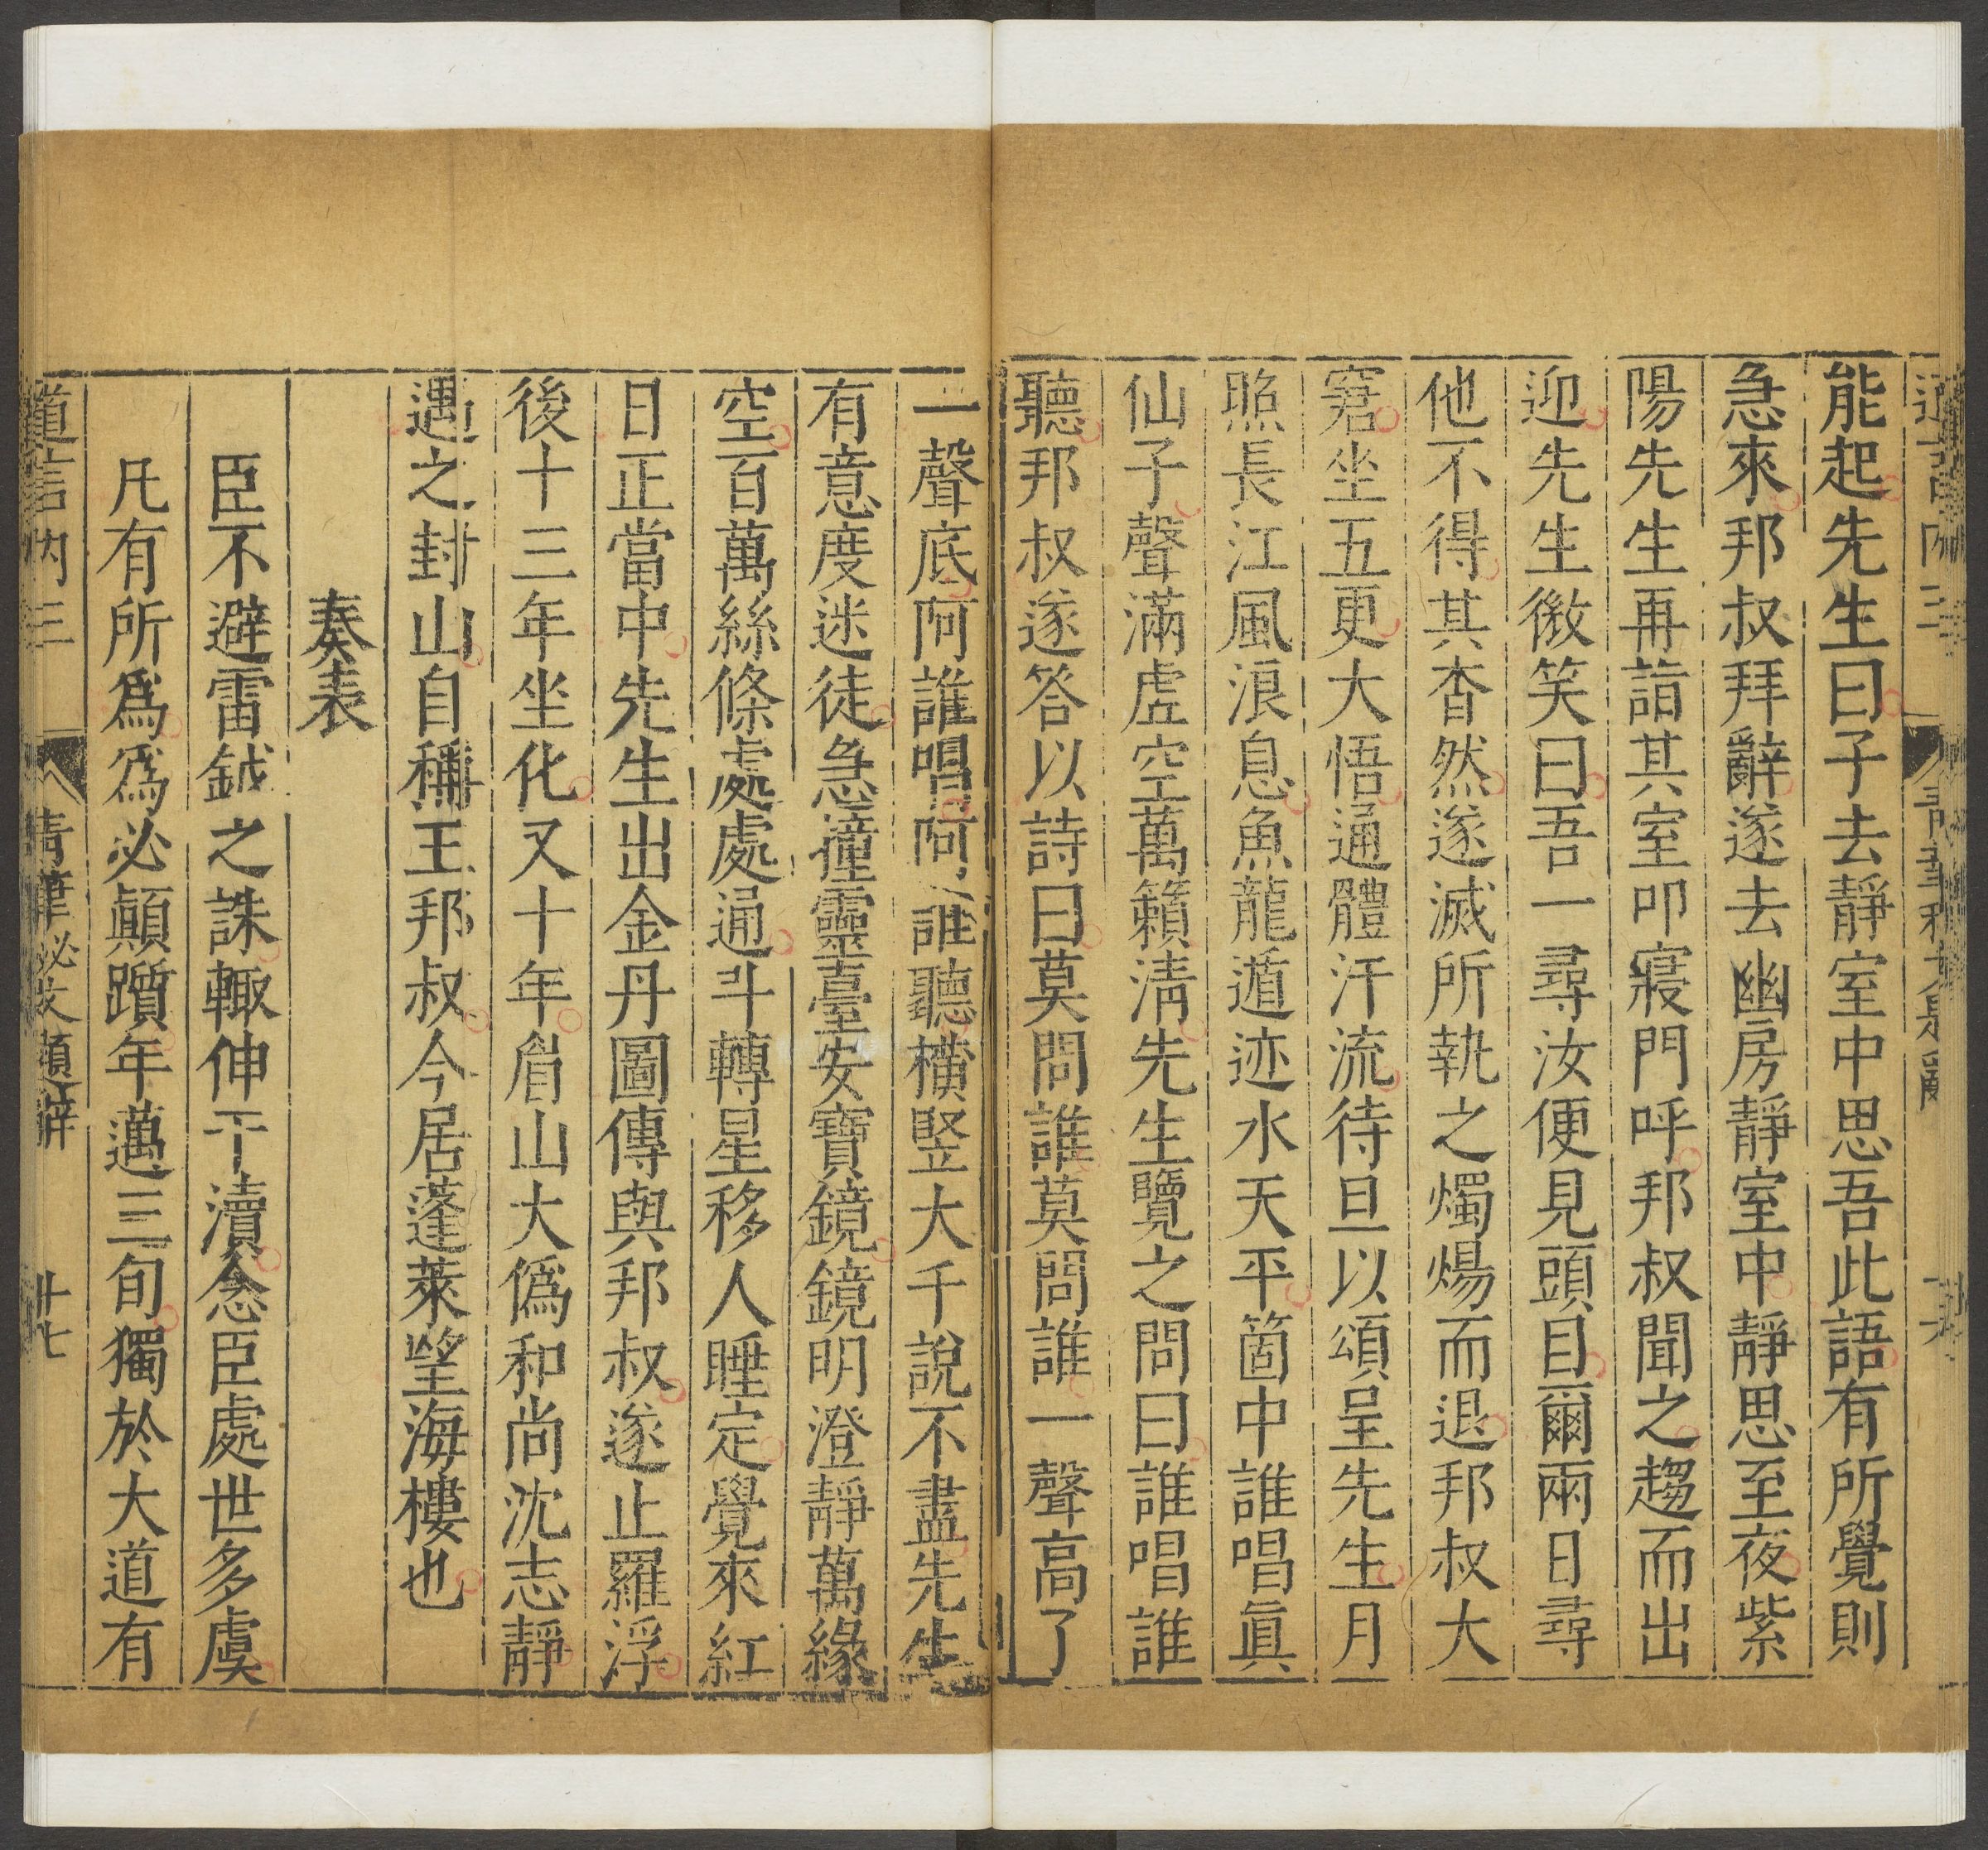 能起先生曰子去靜室中思吾此語有所覺則
急來邦叔拜辭遂去幽房靜室中靜思至夜紫
陽先生再詣其室叩寢門呼邦叔聞之趨而出
迎先生微笑曰吾一尋汝便見頭目爾兩日尋
他不得其杳然遂滅所執之燭煬而退邦叔大
窘坐五更大悟通體汗流待旦以頌呈先生月
照長江風浪息魚龍遁迹水天平箇中誰唱眞
仙子聲滿虛空萬籟清先生覽之問曰誰唱誰
聽邦叔遂答以詩曰莫問誰莫問誰一聲高了
一聲底阿誰唱阿誰聽橫竪大千說不盡先生
有意度迷徒急撞靈臺安寶鏡鏡明澄靜萬緣
空百萬絲條處處通斗轉星移人睡定覺來紅
日正當中先生出金丹圖傳與邦叔遂止羅浮
後十三年坐化又十年眉山大僞和尚沈志靜
遇之封山自稱王邦叔今居蓬萊望海樓也
奏表
臣不避雷鉞之誅輙伸干瀆念臣處世多虞
凡有所爲爲必顚躓年邁三旬獨於大道有
道言內三 青華秘文顯辭 廿七